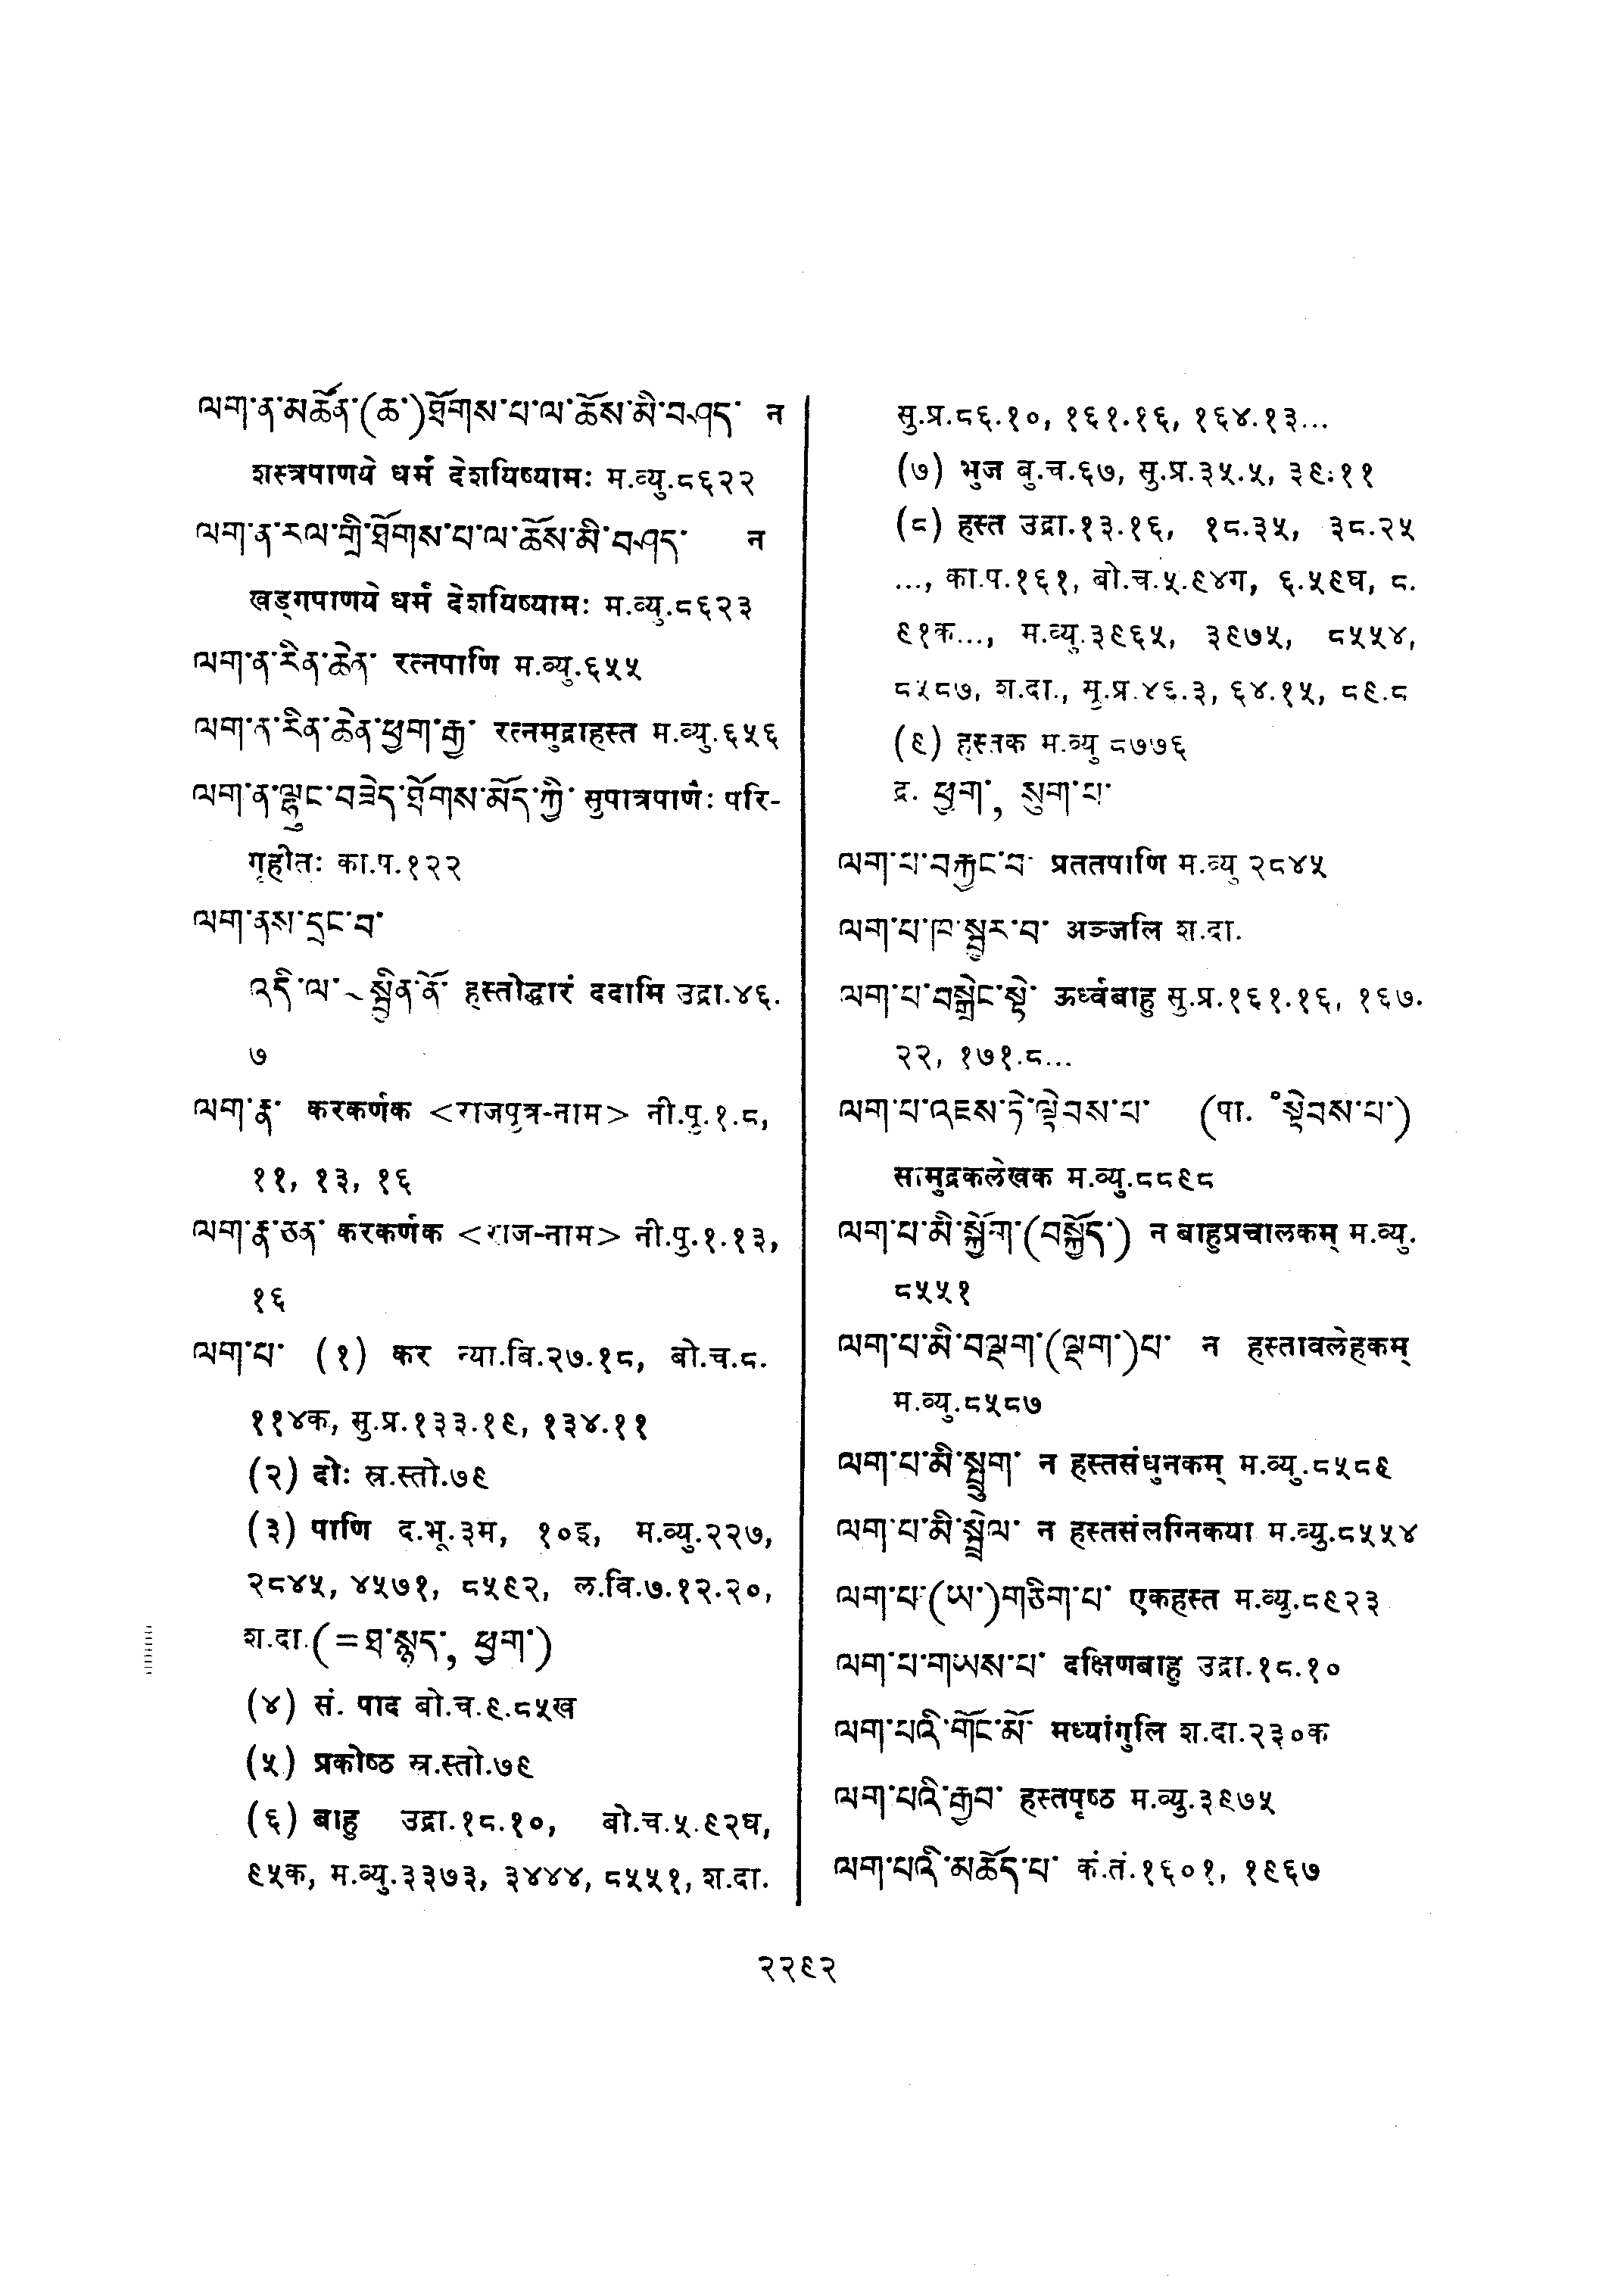 ལག་ན་མཚོན་(ཆ་)ཐོགས་པ་ལ་ཆོས་མི་བཤད་ न
शस्त्रपाणये धर्मं देशयिष्यामः म.व्यु.८६२२
ལག་ན་རལ་གྲི་ཐོགས་པ་ལ་ཆོས་མི་བཤད་ न
खड्गपाणये धर्मं देशयिष्यामः म.व्यु.८६२३
ལག་ན་རིན་ཆེན་ रत्नपाणि म.व्यु.६५५
ལག་ན་རིན་ཆེན་ཕྱག་རྒྱ་ रत्नमुद्राहस्त म.व्यु.६५६
ལག་ན་ལྷུང་བཟེད་ཐོགས་མོད་ཀྱི་ सुपात्रपाणैः परि-
गृहीतः का.प.१२२
ལག་ནས་དྲང་བ་
འདི་ལ་ ~ སྦྱིན་ནོ་ हस्तोद्धारं ददामि उद्रा.४६.
७
ལག་རྣ་ करकर्णक <राजपुत्र-नाम> नी.पु.१.८,
११, १३, १६
ལག་རྣ་ཅན་ करकर्णक <राज-नाम> नी.पु.१.१३,
१६
ལག་པ་ (१) कर न्या.बि.२७.१८, बो.च.८.
११४क, सु.प्र.१३३.१९, १३४.११
(२) दोः स्र.स्तो.७९
(३) पाणि द.भू.३म, १०इ, म.व्यु.२२७,
२८४५, ४५७१, ८५९२, ल.वि.७.१२.२०,
श.दा.(=ཐ་སྙད་, ཕྱག་)
(४) सं. पाद बो.च.९.८५ख
(५) प्रकोष्ठ स्र.स्तो.७९
(६) बाहु उद्रा.१८.१०, बो.च.५.९२घ,
९५क, म.व्यु.३३७३, ३४४४, ८५५१, श.दा.
सु.प्र.८६.१०, १६१.१६, १६४.१३...
(७) भुज बु.च.६७, सु.प्र.३५.५, ३९.११
(८) हस्त उद्रा.१३.१६, १८.३५, ३८.२५
..., का.प.१६१, बो.च.५.९४ग, ६.५९घ, ८.
९१क..., म.व्यु.३९६५, ३९७५, ८५५४,
८५८७, श.दा., सु.प्र.४६.३, ६४.१५, ८९.८
(९) हस्तक म.व्यु ८७७६
द्र. ཕྱག་, སུག་པ་
ལག་པ་བརྐྱང་བ་ प्रततपाणि म.व्यु २८४५
ལག་པ་ཁ་སྦྱར་བ་ अञ्जलि श.दा.
ལག་པ་བསྒྲེང་སྟེ་ ऊर्ध्वबाहु सु.प्र.१६१.१६, १६७.
२२, १७१.८...
ལག་པ་འཇས་ཏེ་ལྡེབས་པ་ (पा. ॰སྡེབས་པ་)
सामुद्रकलेखक म.व्यु.८८९८
ལག་པ་མི་སྐྱོག་(བསྐྱོད་) न बाहुप्रचालकम् म.व्यु.
८५५१
ལག་པ་མི་བལྡག་(ལྡག་)པ་ न हस्तावलेहकम्
म.व्यु.८५८७
ལག་པ་མི་སྤྲུག་ न हस्तसंधुनकम् म.व्यु.८५८९
ལག་པ་མི་སྦྲེལ་ न हस्तसंलग्निकया म.व्यु.८५५४
ལག་པ་(ཡ་)གཅིག་པ་ एकहस्त म.व्यु.८९२३
ལག་པ་གཡས་པ་ दक्षिणबाहु उद्रा.१८.१०
ལག་པའི་གོང་མོ་ मध्यांगुलि श.दा.२३०क
ལག་པའི་རྒྱབ་ हस्तपृष्ठ म.व्यु.३९७५
ལག་པའི་མཆོད་པ་ कं.तं.१६०१, १९६७
२२९२